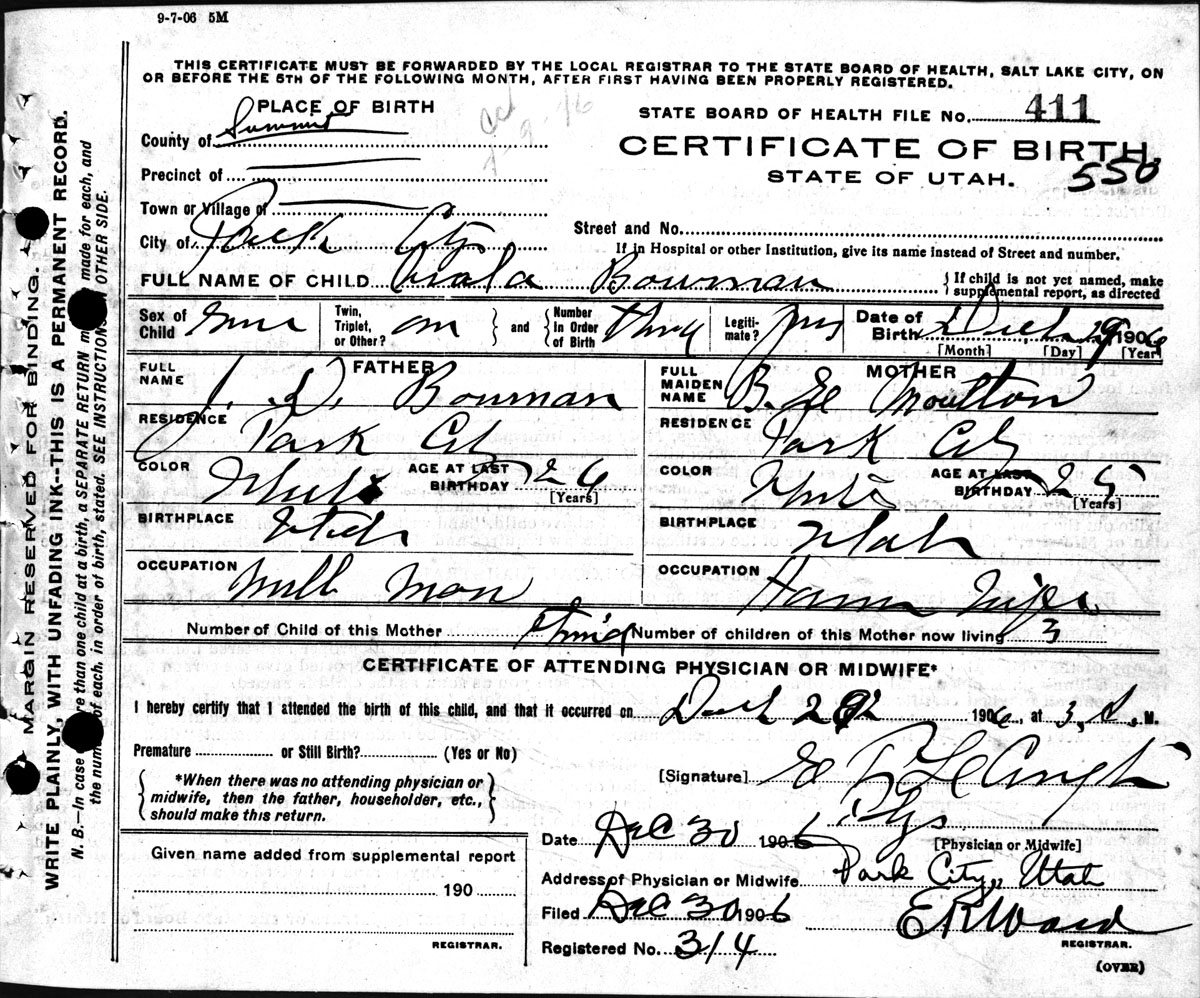 9-7-06 5M
THIS CERTIFICATE MUST BE FORWARDED BY THE LOCAL REGISTRAR TO THE STATE BOARD OF HEALTH, SALT LAKE CITY, ON
OR BEFORE THE 5TH OF THE FOLLOWING MONTH, AFTER FIRST HAVING BEEN PROPERLY REGISTERED.
PLACE OF BIRTH
County of Summit
Precinct of
Town or Village of
City of Park City
STATE BOARD OF HEALTH FILE No. 411
CERTIFICATE OF BIRTH.
STATE OF UTAH. 550
Street and No.
If in Hospital or other Institution, give its name instead of Street and number.
FULL NAME OF CHILD Bowman
{ If child is not yet named, make
supplemental report, as directed
Sex of Child
Twin, Triplet, or Other? } and { Number In Order of Birth
Legiti-mate? yes
Date of Birth 1906
[Month] [Day] [Year]
FATHER
FULL NAME J. D. Bowman
RESIDENCE Park City
COLOR White AGE AT LAST BIRTHDAY 26 [Years]
BIRTHPLACE Utah
OCCUPATION Mill Man
MOTHER
FULL MAIDEN NAME B. E Moulton
RESIDENCE Park City
COLOR White AGE AT LAST BIRTHDAY 25 [Years]
BIRTHPLACE Utah
OCCUPATION House Wife
Number of Child of this Mother Third Number of children of this Mother now living 3
CERTIFICATE OF ATTENDING PHYSICIAN OR MIDWIFE*
I hereby certify that I attended the birth of this child, and that it occurred on 1906, at 3 M.
Premature or Still Birth? (Yes or No)
{ *When there was no attending physician or
midwife, then the father, householder, etc.,
should make this return. }
[Signature] E
[Physician or Midwife]
Date Dec 30 1906
Address of Physician or Midwife Park City, Utah
Filed Dec 30 1906 E R Ward
REGISTRAR.
Registered No. 314
(OVER)
Given name added from supplemental report
190
REGISTRAR.
MARGIN RESERVED FOR BINDING.
WRITE PLAINLY, WITH UNFADING INK--THIS IS A PERMANENT RECORD.
N. B.—In case re than one child at a birth, a SEPARATE RETURN m made for each, and
the num of each, in order of birth, stated. SEE INSTRUCTIONS OTHER SIDE.